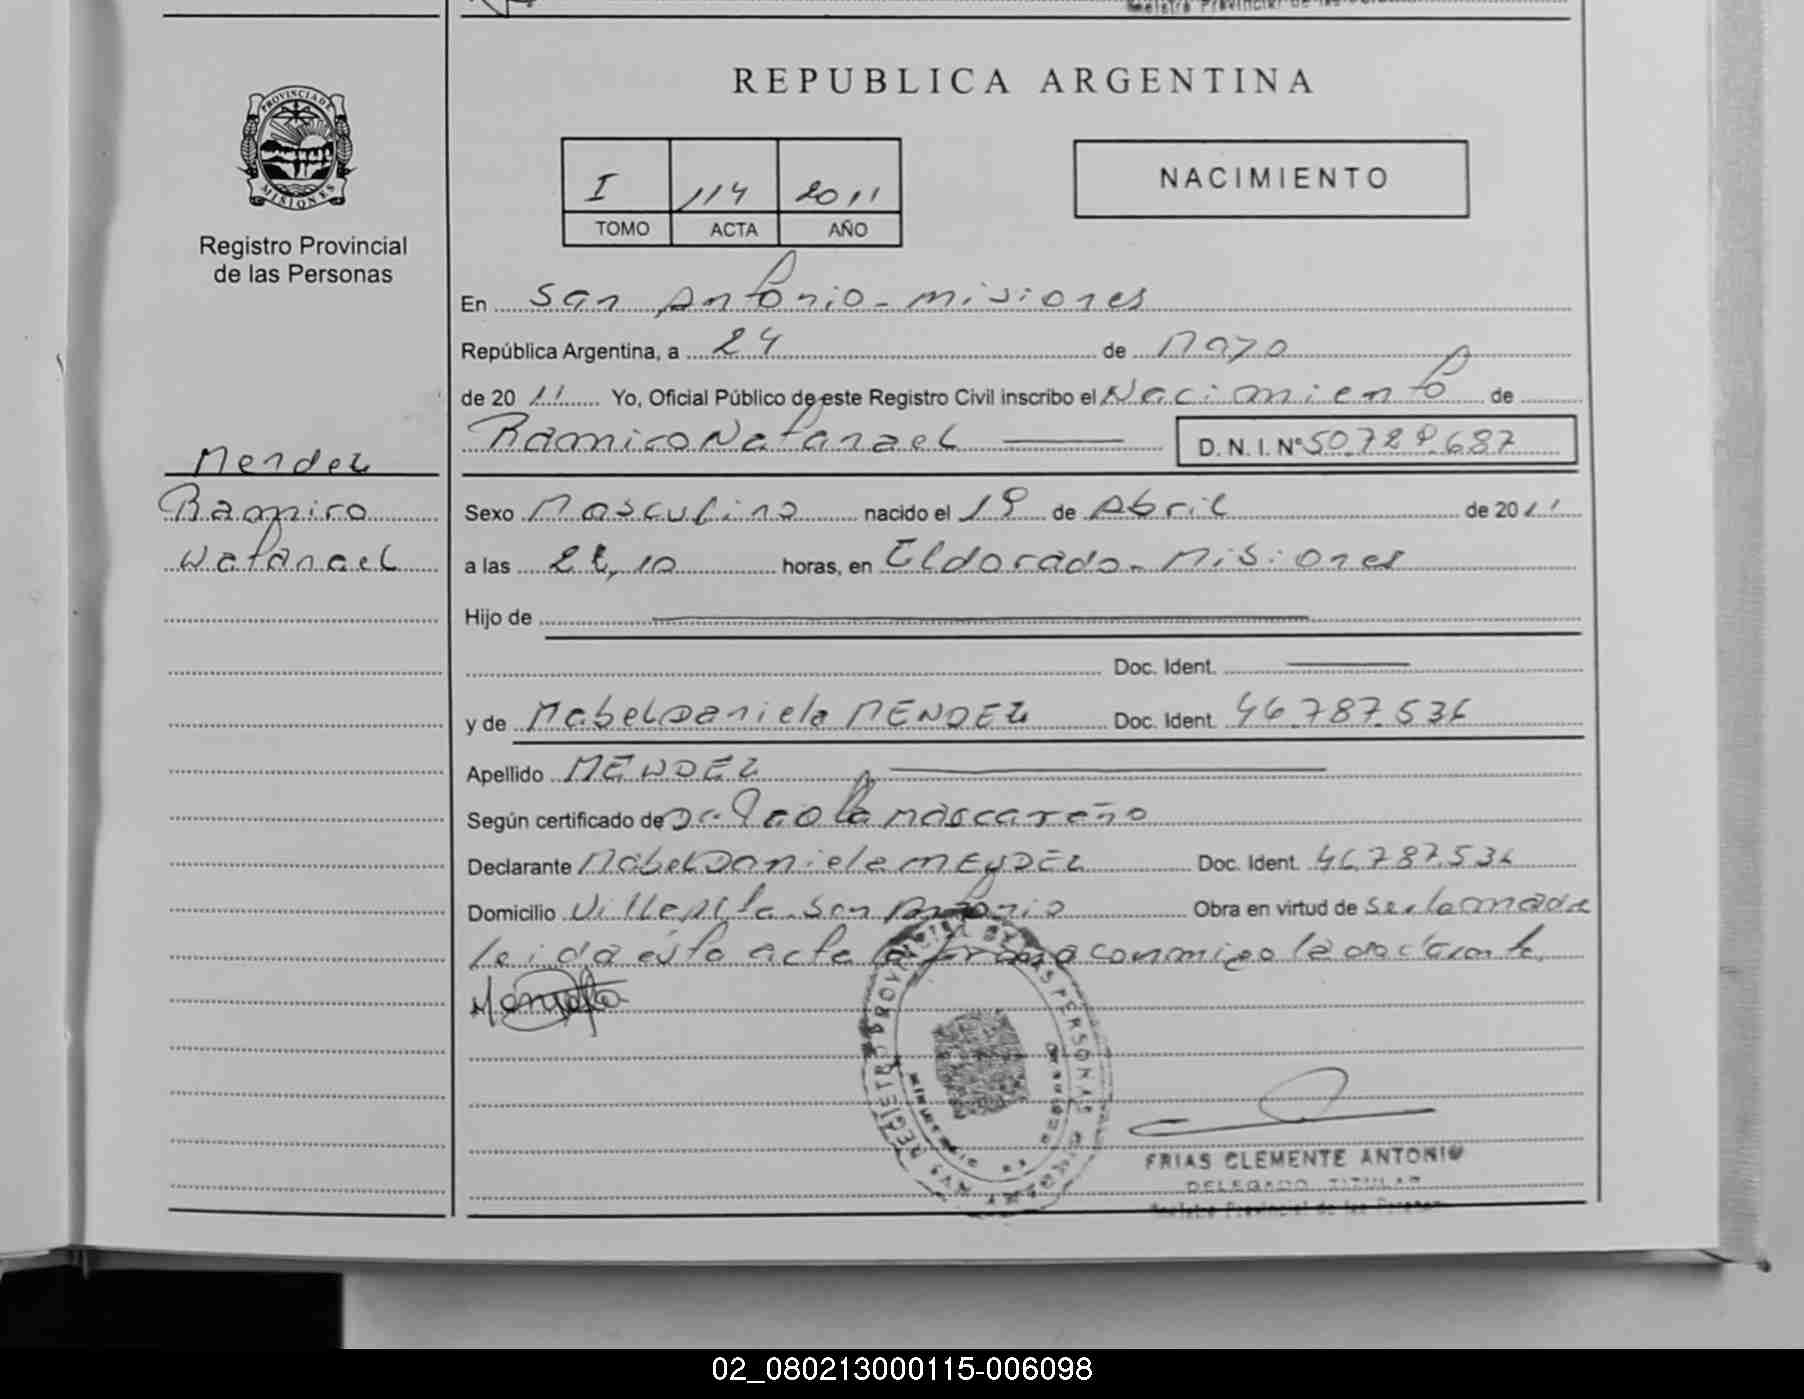 REPUBLICA ARGENTINA
PROVINCIA DE
MISIONES
Registro Provincial
de las Personas
I 114 2011
TOMO ACTA AÑO
NACIMIENTO
En San Antonio - Misiones
República Argentina, a 24 de Mayo
de 2011 Yo, Oficial Público de este Registro Civil inscribo el Nacimiento de
Ramiro Natanael D.N.I. Nº
Mendez
Ramiro
Natanael
Sexo Masculino nacido el de Abril de 2011
a las horas, en Eldorado - Misiones
Hijo de
Doc. Ident.
y de Mabel Daniela MENDEZ Doc. Ident. 46.787.536
Apellido MENDEZ
Según certificado de Dr. Paola Mascareño
Declarante Mabel Daniela MENDEZ Doc. Ident. 46.787.536
Domicilio San Antonio Obra en virtud de ser la madre
Leida esta acta la firma conmigo la declarante.
FRIAS CLEMENTE ANTONIO
DELEGADO TITULAR
Registro Provincial de las Personas
02_080213000115-006098